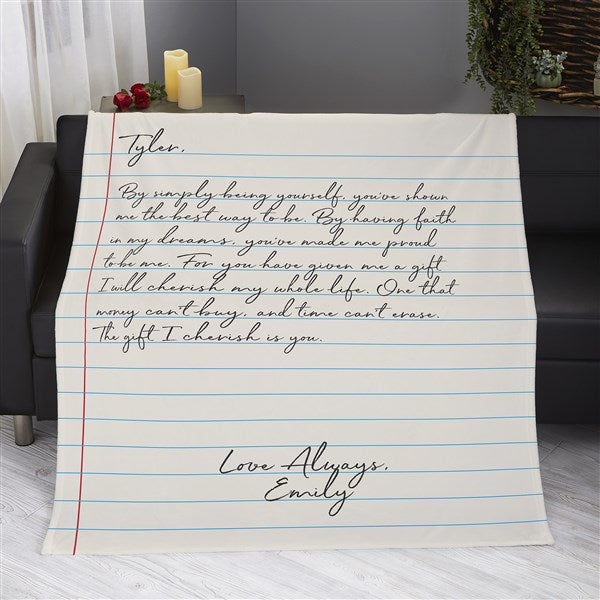 Tyler,
By simply being yourself, you've shown
me the best way to be. By having faith
in my dreams, you've made me proud
to be me. For you have given me a gift
I will cherish my whole life. One that
money can't buy, and time can't erase.
The gift I cherish is you.
Love Always,
Emily